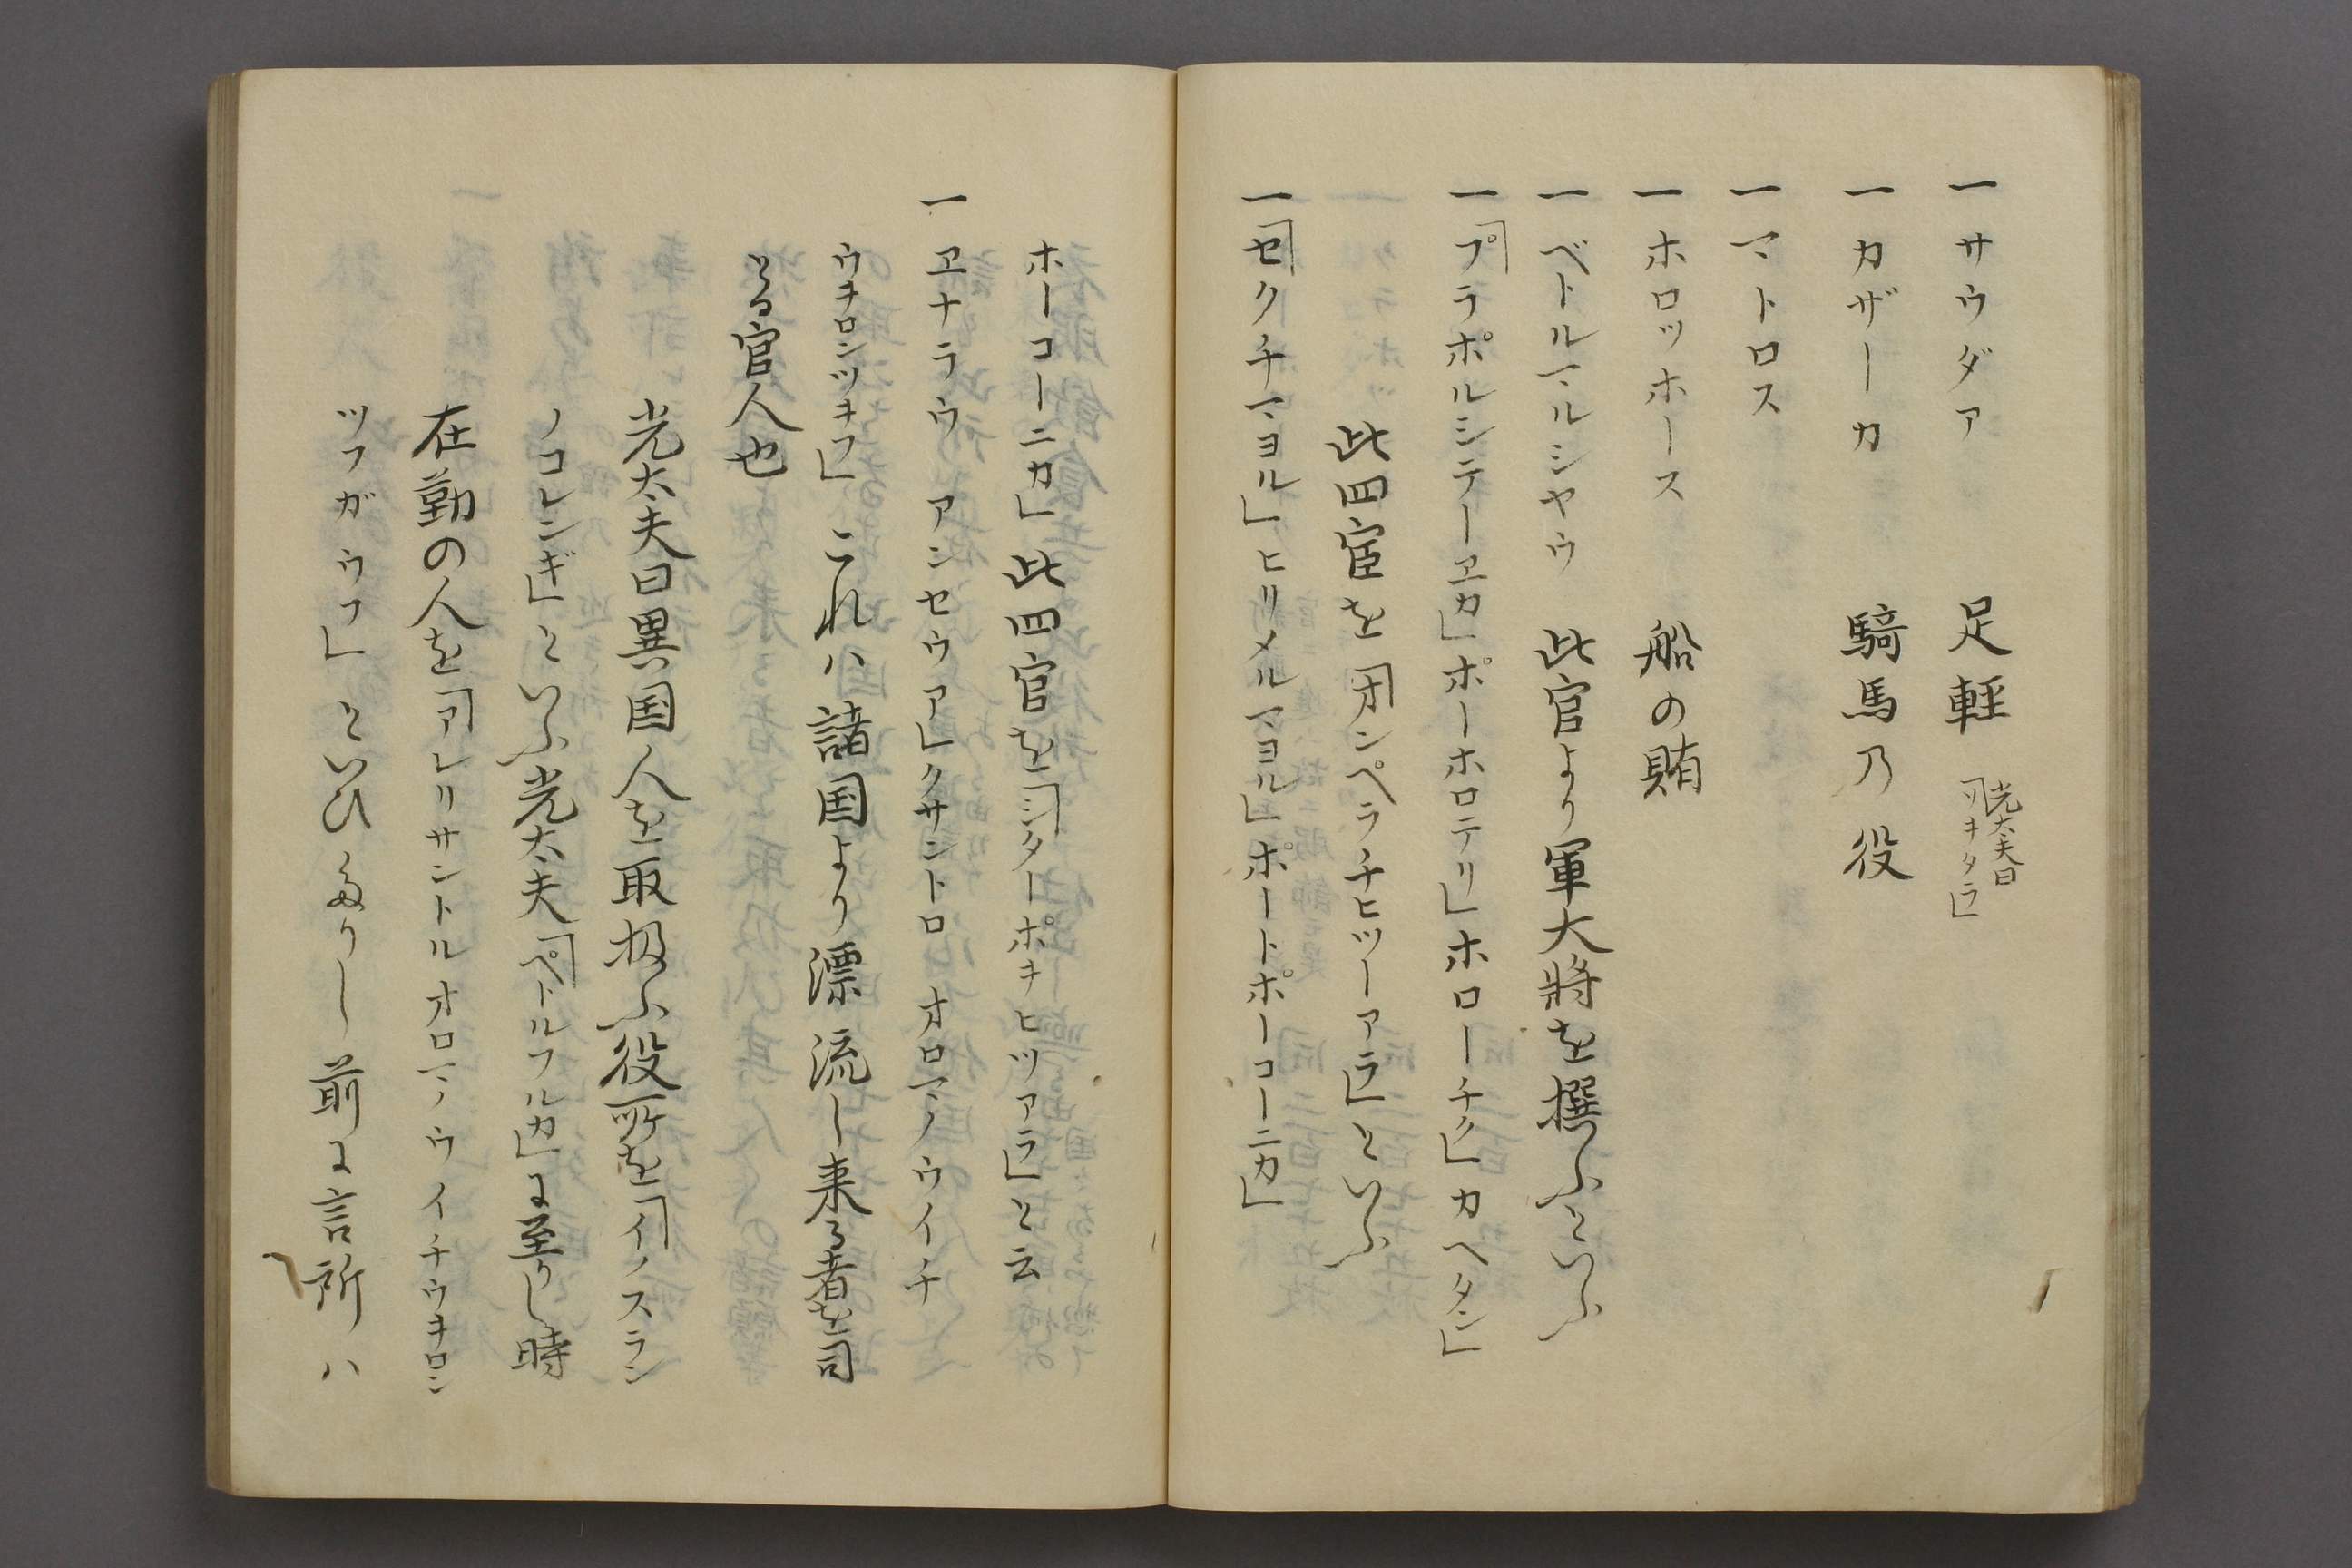 一サウダア　足軽　光太夫曰「ソキタラ」
一カザーカ　騎馬乃役
一マトロス
一ホロツホース　船の賄
一ベトルマルシヤウ　此官より軍大将を撰ふといふ
一「プラポルシテーヱカ」ポーホロテリ」ホローチク」カヘタン」
此四宦を「オンペラチヒツーアラ」といふ
一「セクチマヨル」ヒリメルマヨル」ポートポーコーニカ」
ホーコーニカ」此四官を「シターポキヒツアラ」と云
一ヱナラウ　アシセウア」クサントロ　オロマノウイチ
ウヰロンツヲフ」これハ諸国より漂流し来る者を司
とる官人也
光太夫曰異国人を取扱ふ役所を「イノスラン
ノコレンギ」といふ光太夫「ペトルフルカ」に至りし時
在勤の人を「アレリサントルオロマノウイチウヰロン
ツフガウフ」といひたりし前に言所ハ